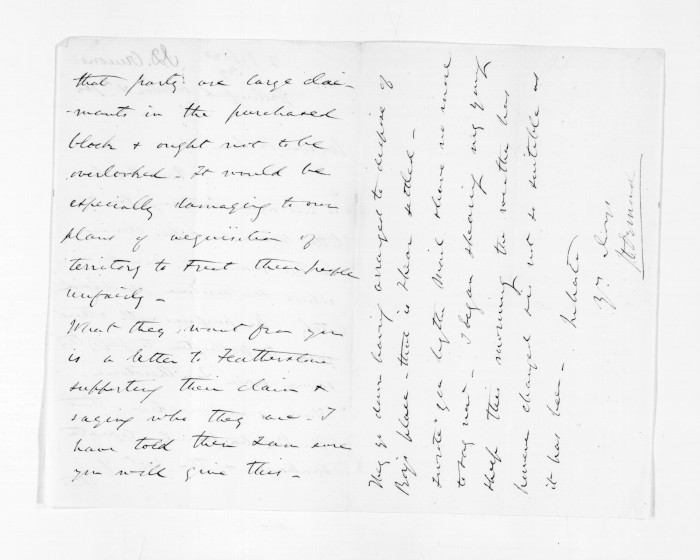 that party are large clai-
-mants in the purchased
block & ought not to be
overlooked - It would be
especially damaging to our
plans of acquisition of
territory to treat these people
unfairly -
What they want from you
is a letter to Featherstone
supporting their claim &
saying who they are - I
have told them I am sure
you will give this -
They go down having arranged to dispose of
Boys place - that is I hear settled -
I wrote you by the mail & have no more
to say now - I began shearing my young
sheep this morning the weather has
however changed & is not so suitable as
it has been -
Yrs
J D Ormond